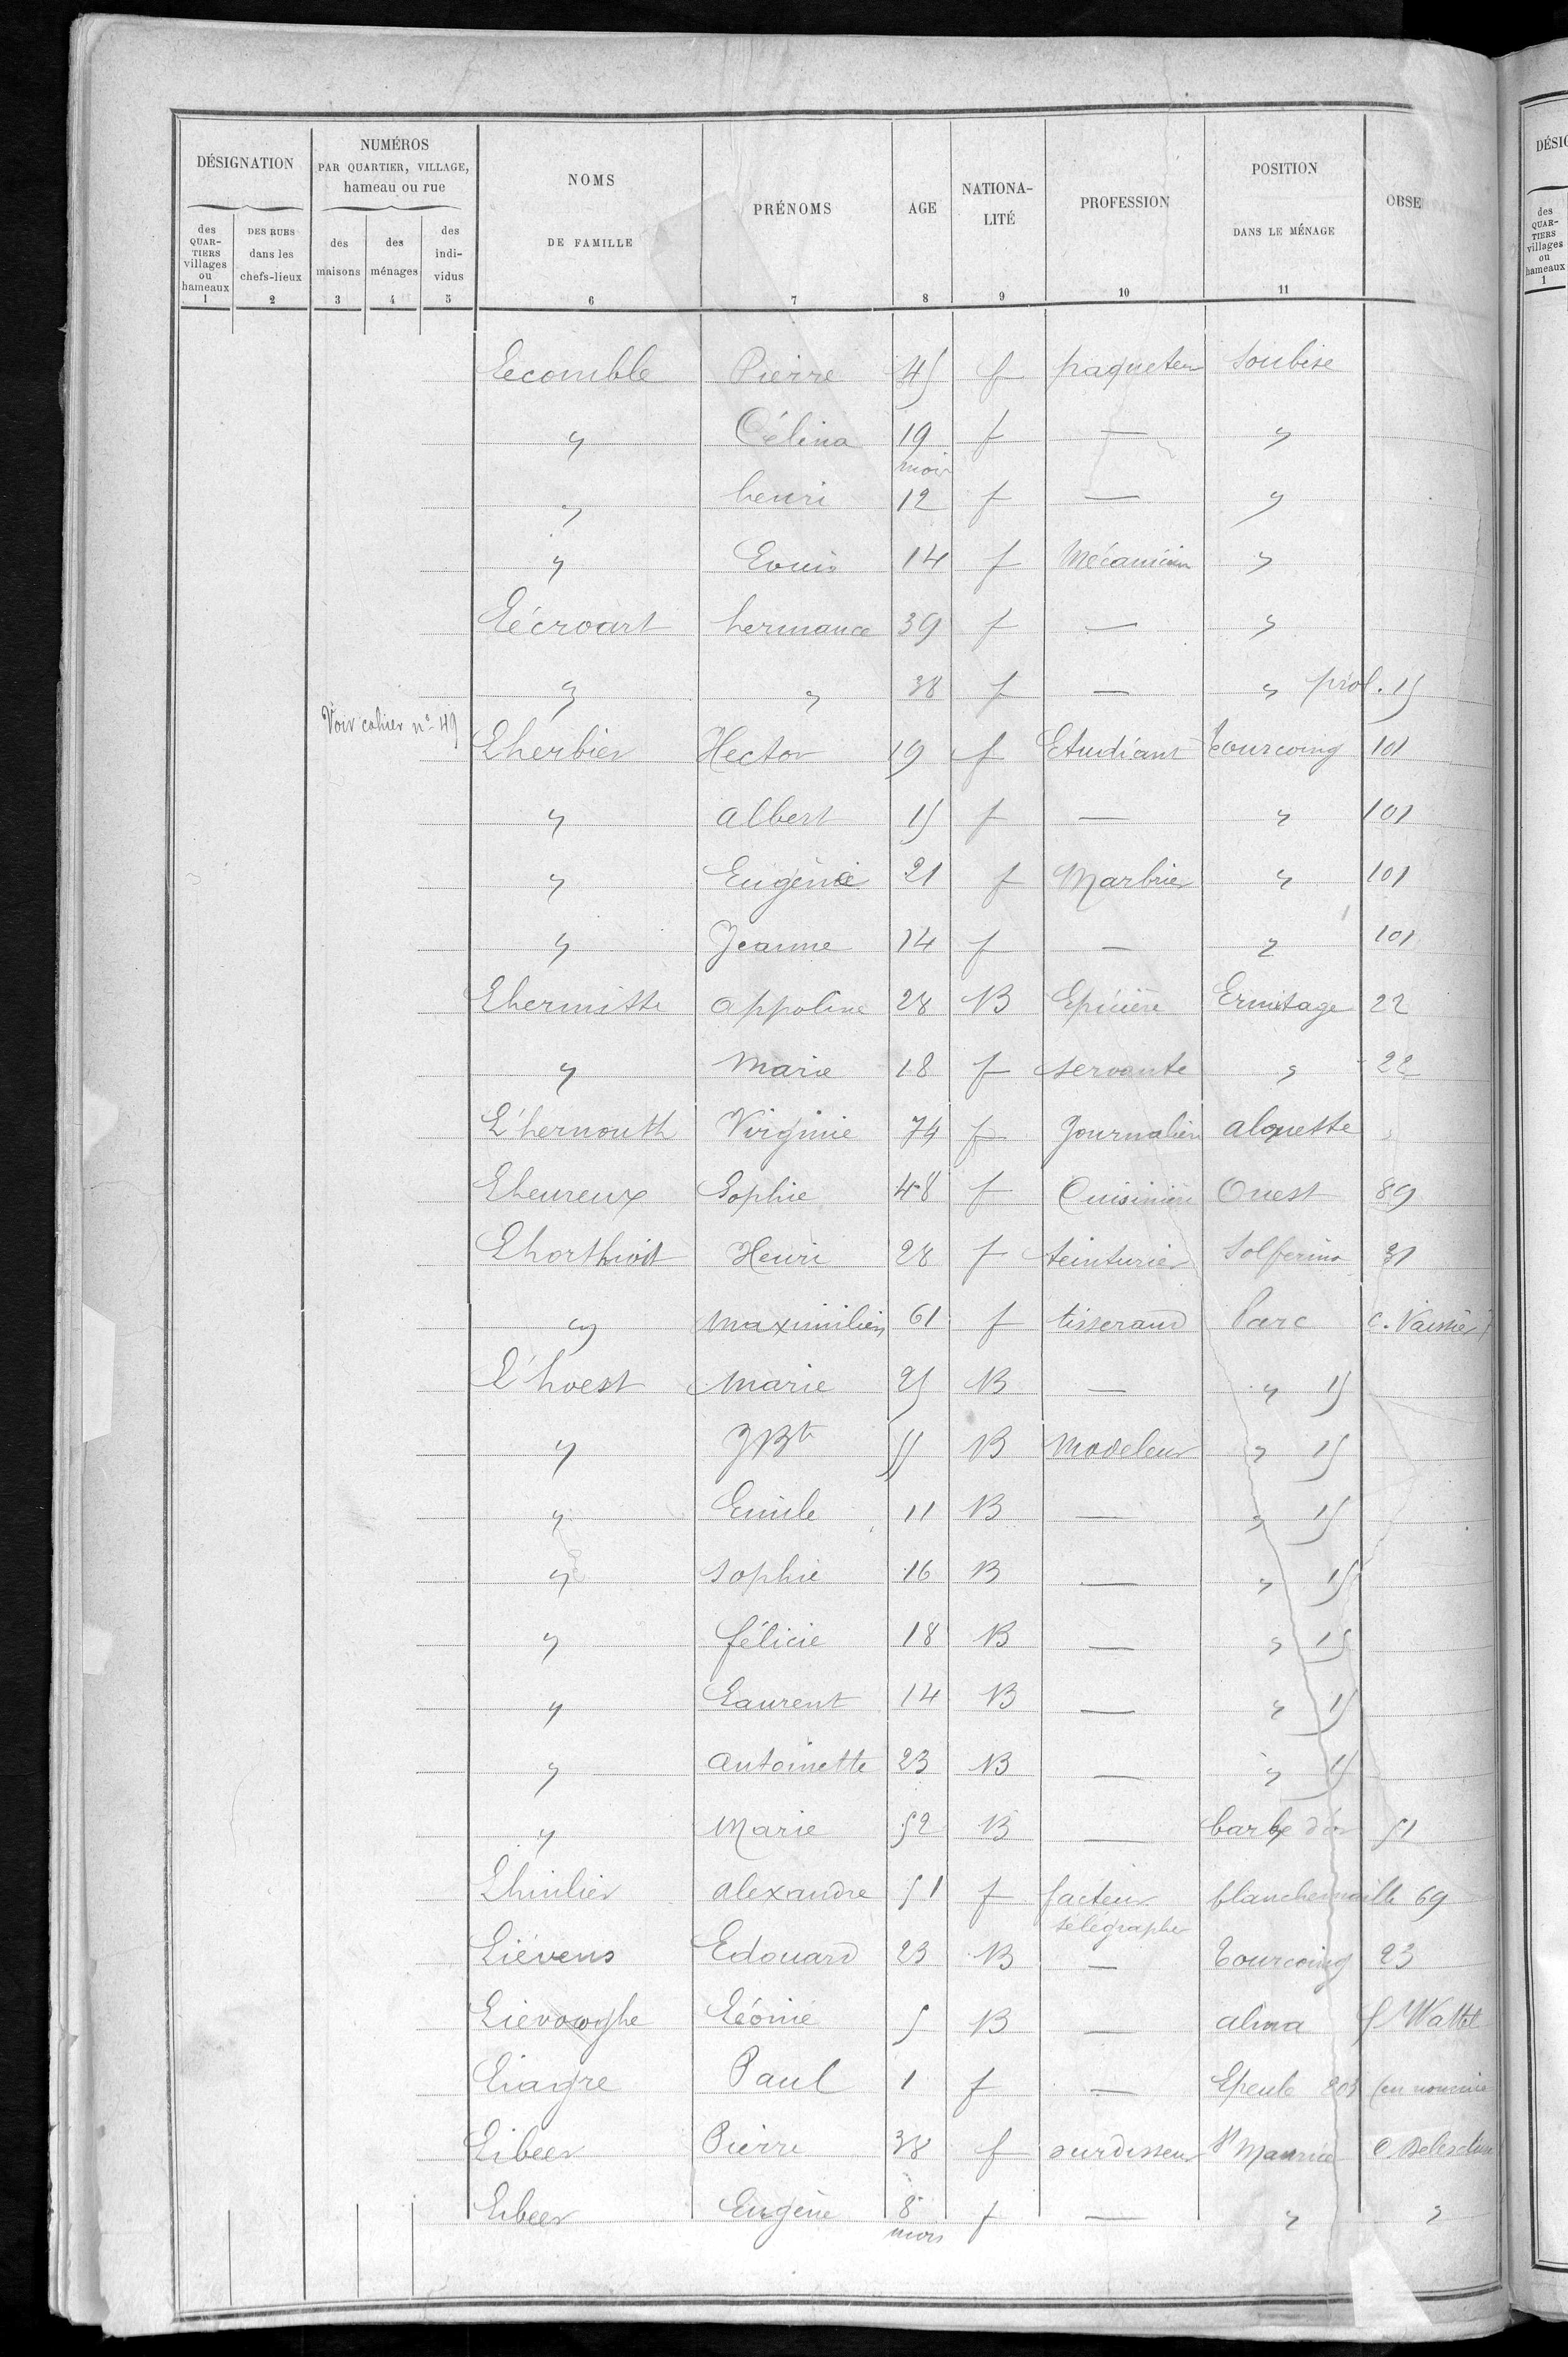 DÉSIGNATION
NUMÉROS
PAR QUARTIER, VILLAGE,
hameau ou rue
NOMS
DE FAMILLE
PRÉNOMS
AGE
NATIONA-
LITÉ
PROFESSION
POSITION
DANS LE MÉNAGE
OBSE
des
QUAR-
TIERS
villages
ou
hameaux
DES RUES
dans les
chefs-lieux
des
maisons
des
ménages
des
indi-
vidus
1 2 3 4 5 6 7 8 9 10 11
Lecomble Pierre 45 f paqueteur Soubise
" Célina 19 f — "
mois
" henri 12 f — "
" Louis 14 f Mécanicien "
Lécroart hermance 39 f — "
" " 38 f — " prol. 15
Voir cahier n° 49
Lherbier Hector 19 f Etudiant Tourcoing 101
" albert 15 f — " 101
" Eugénie 21 f Marbrier " 101
" Jeanne 14 f — " 101
Lhermitte appoline 28 B Epicière Ermitage 22
" Marie 18 f servante " 22
L'hernouth Virginie 74 f Journalière alouette "
Lheureux Sophie 48 f Cuisinière Ouest 89
Lhorthioit Henri 28 f teinturier Solferino 31
" Maximilien 61 f tisserand Parc c. Vaissier
L'hoest Marie 25 B — " 15
" JBte 55 B Modeleur " 15
" Emile 11 B — " 15
" Sophie 16 B — " 15
" félicie 18 B — " 15
" Laurent 14 B — " 15
" antoinette 23 B — " 15
" Marie 52 B — barbe d'or 51
Lhulier alexandre 51 f facteur blanchemaille 69
télégraphe
Liévens Edouard 23 B — Tourcoing 23
Léonie 5 B — alma f Wattel
Liagre Paul 1 f — Epeule 203 (en nourrice
Libeer Pierre 38 f ourdisseur St Maurice
Libeer Eugène 8 f — " "
mois
DÉSIG
des
QUAR-
TIERS
villages
ou
hameaux
1